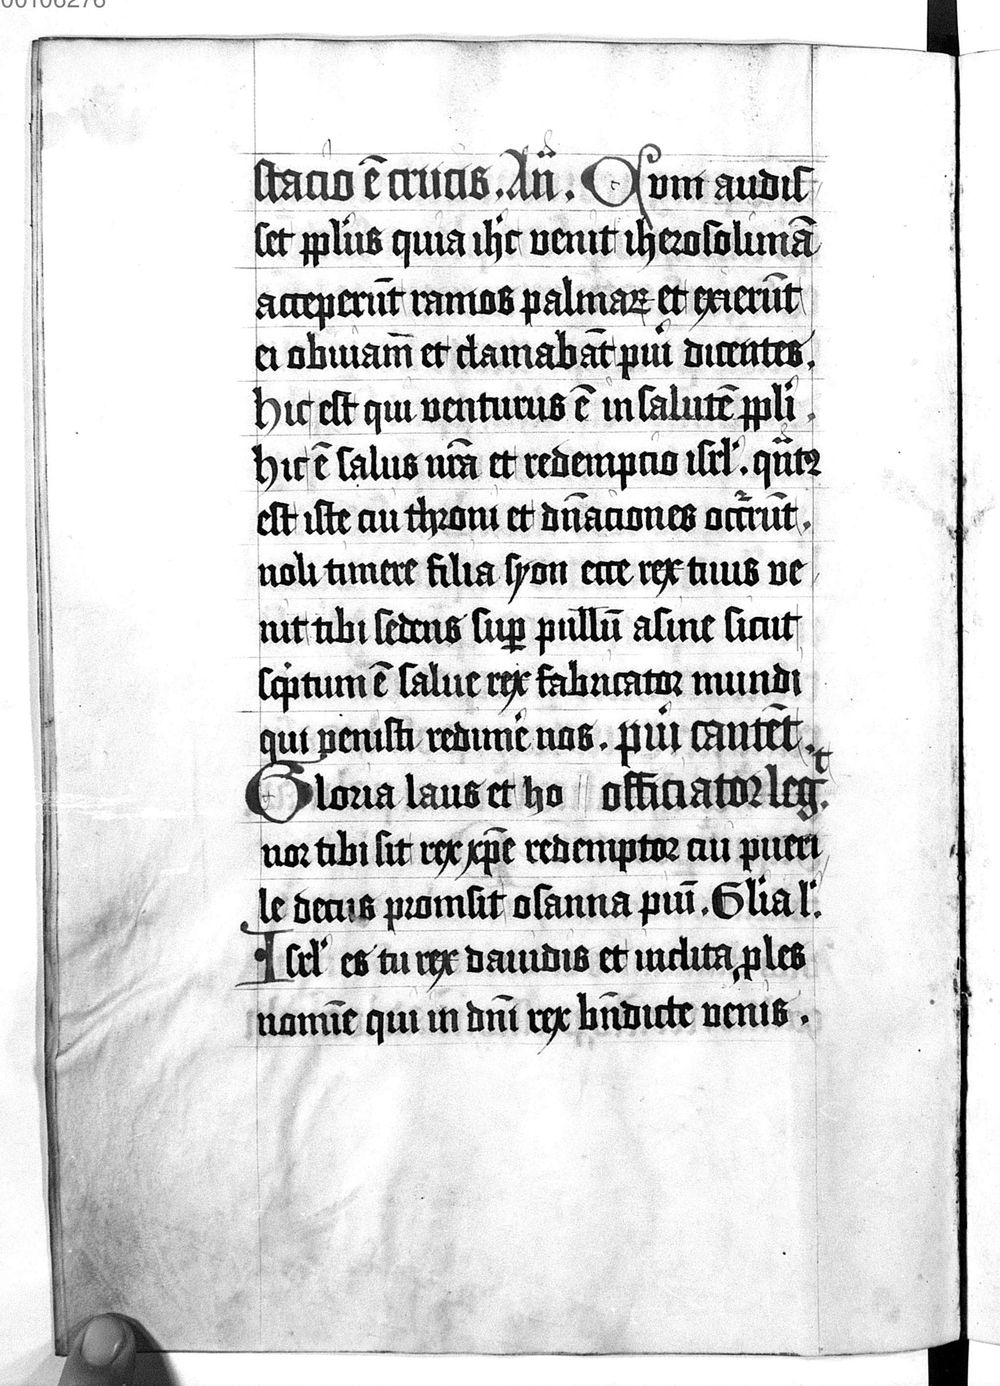 00106276
stacio ē crucis. Añ. Qvm audis
set ppl'us quia ihc venit iherosolimā
acceperūt ramos palmaꝝ et exierūt
ei obuiam̄ et clamabāt pu'i dicentes.
hic est qui venturus ē in salutē ppli.
hic ē salus nr̄a et redempcio isrl'. qñtꝰ
est iste cui throni et dn̄aciones occr̄rūt.
noli timere filia syon ecce rex tuus ve
nit tibi sedens suꝑ pullū asine sicut
sc'ptum ē salue rex fabricator mundi
qui venisti redim'e nos. pu'i cantēt.
Gloria laus et ho officiator leg.t
nor tibi sit rex xp̄e redemptor cui pueri
le decus promsit osanna piū. Gl'ia l'.
Isrl' es tu rex dauidis et inclita ꝓles
nomīe qui in dn̄i rex bn̄dicte venis.